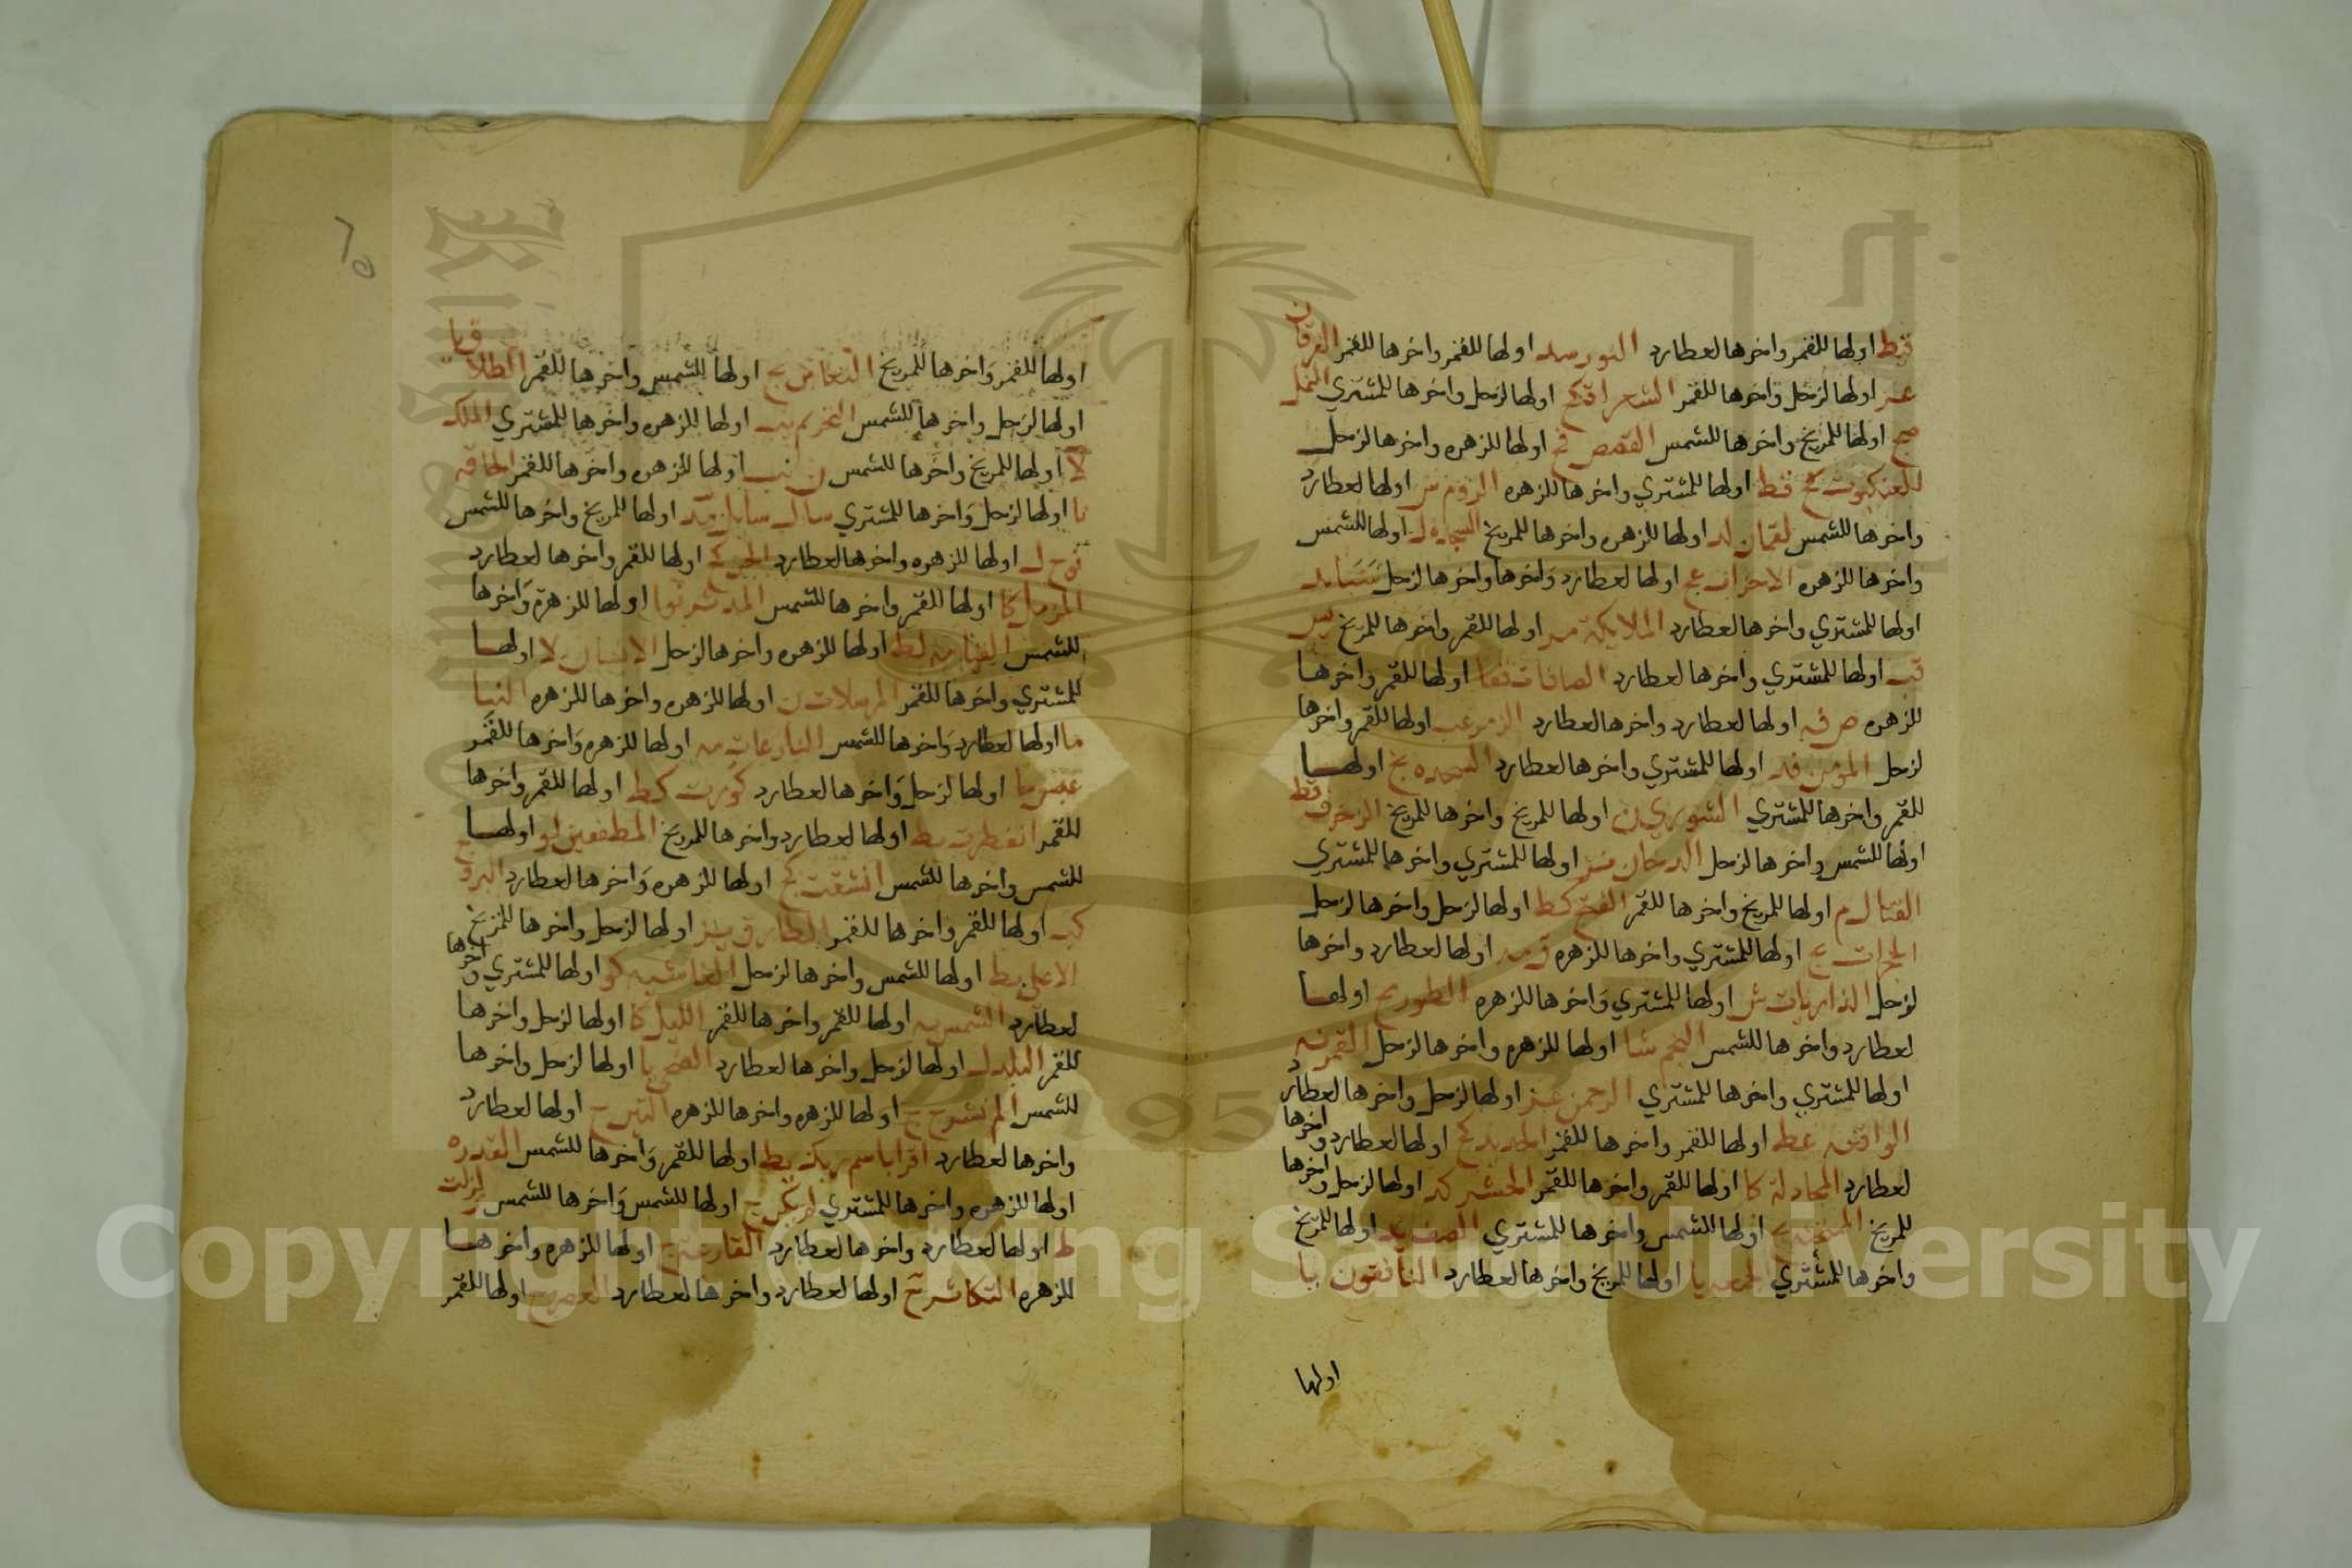 قيط اولها للقمر واخرها لعطارد النور سد اولها للقمر واخرها للقمر الفرقان
عز اولها لزحل واخرها للقمر الشعرا اولها لزحل واخرها للمشتري النمل
صح اولها للمريخ واخرها للشمس القصص اولها للزهره واخرها لزحل
العنكبوت اولها للمشتري واخرها للزهره الروم س اولها لعطارد
واخرها للشمس لقمان لد اولها للزهره واخرها للمريخ السجده ل اولها للشمس
واخرها للزهره الاحزاب عج اولها لعطارد واخرها واخرها لزحل سبا
اولها للمشتري واخرها لعطارد الملايكة مه اولها للقمر واخرها للمريخ يس
اولها للمشتري واخرها لعطارد الصافات اولها للقمر واخرها
للزهره ص اولها لعطارد واخرها لعطارد الزمر اولها للقمر واخرها
لزحل المومن فه اولها للمشتري واخرها لعطارد السجده اولها
للقمر واخرها للمشتري الشوري ن اولها للمريخ واخرها للمريخ الزخرف فط
اولها للشمس واخرها لزحل الدخان اولها للمشتري واخرها للمشتري
القتال م اولها للمريخ واخرها للقمر الفتح كط اولها لزحل واخرها لزحل
الحجرات يح اولها للمشتري واخرها للزهره ق مه اولها لعطارد واخرها
لزحل الذاريات س اولها للمشتري واخرها للزهره الطور اولها
لعطارد واخرها للشمس النجم سا اولها للزهره واخرها لزحل القمر نه
اولها للمشتري واخرها للمشتري الرحمن اولها لزحل واخرها لعطارد
الواقعه عط اولها للقمر واخرها للقمر الحديد كح اولها لعطارد واخرها
لعطارد المجادلة كا اولها للقمر واخرها للقمر الحشر كد اولها لزحل واخرها
للمريخ الممتحنه اولها للشمس واخرها للمشتري الصف يد اولها للمريخ
واخرها للمشتري الجمعه يا اولها للمريخ واخرها لعطارد المنافقون يا
اولها
اولها للقمر واخرها للمريخ التغابن يح اولها للشمس واخرها للقمر الطلاق يا
اولها لزحل واخرها للشمس التحريم يب اولها للزهره واخرها للمشتري الملك
لا اولها للمريخ واخرها للشمس ن نب اولها للزهره واخرها للقمر الحاقه
نا اولها لزحل واخرها للمشتري سال سايل مد اولها للمريخ واخرها للشمس
نوح ل اولها للزهره واخرها لعطارد الجن كح اولها للقمر واخرها لعطارد
المزمل كا اولها للقمر واخرها للشمس المدثر اولها للزهرة واخرها
للشمس القيامه لط اولها للزهره واخرها لزحل الانسان لا اولها
للمشتري واخرها للقمر المرسلات ن اولها للزهره واخرها للزهره النبا
ما اولها لعطارد واخرها للشمس النازعات مه اولها للزهره واخرها للقمر
عبس ما اولها لزحل واخرها لعطارد كورت كط اولها للقمر واخرها
للقمر انفطرت يط اولها لعطارد واخرها للمريخ المطففين لو اولها
للشمس واخرها للشمس انشقت كح اولها للزهره واخرها لعطارد البروج
كب اولها للقمر واخرها للقمر الطارق يز اولها لزحل واخرها للمريخ
الاعلى يط اولها للشمس واخرها لزحل الغاشيه كو اولها للمشتري واخرها
لعطارد الشمس يه اولها للقمر واخرها للقمر الليل كا اولها لزحل واخرها
للقمر البلد ك اولها لزحل واخرها لعطارد الضحى يا اولها لزحل واخرها
للشمس الم نشرح ح اولها للزهره واخرها للزهره التين ح اولها لعطارد
واخرها لعطارد اقرا باسم ربك يط اولها للقمر واخرها للشمس القدر ه
اولها للزهره واخرها للمشتري لم يكن ح اولها للشمس واخرها للشمس زلزلت
ط اولها لعطارد واخرها لعطارد القارعة اولها للزهره واخرها
للزهره التكاثر ح اولها لعطارد واخرها لعطارد العصر اولها للقمر
Copyright © King Saud University